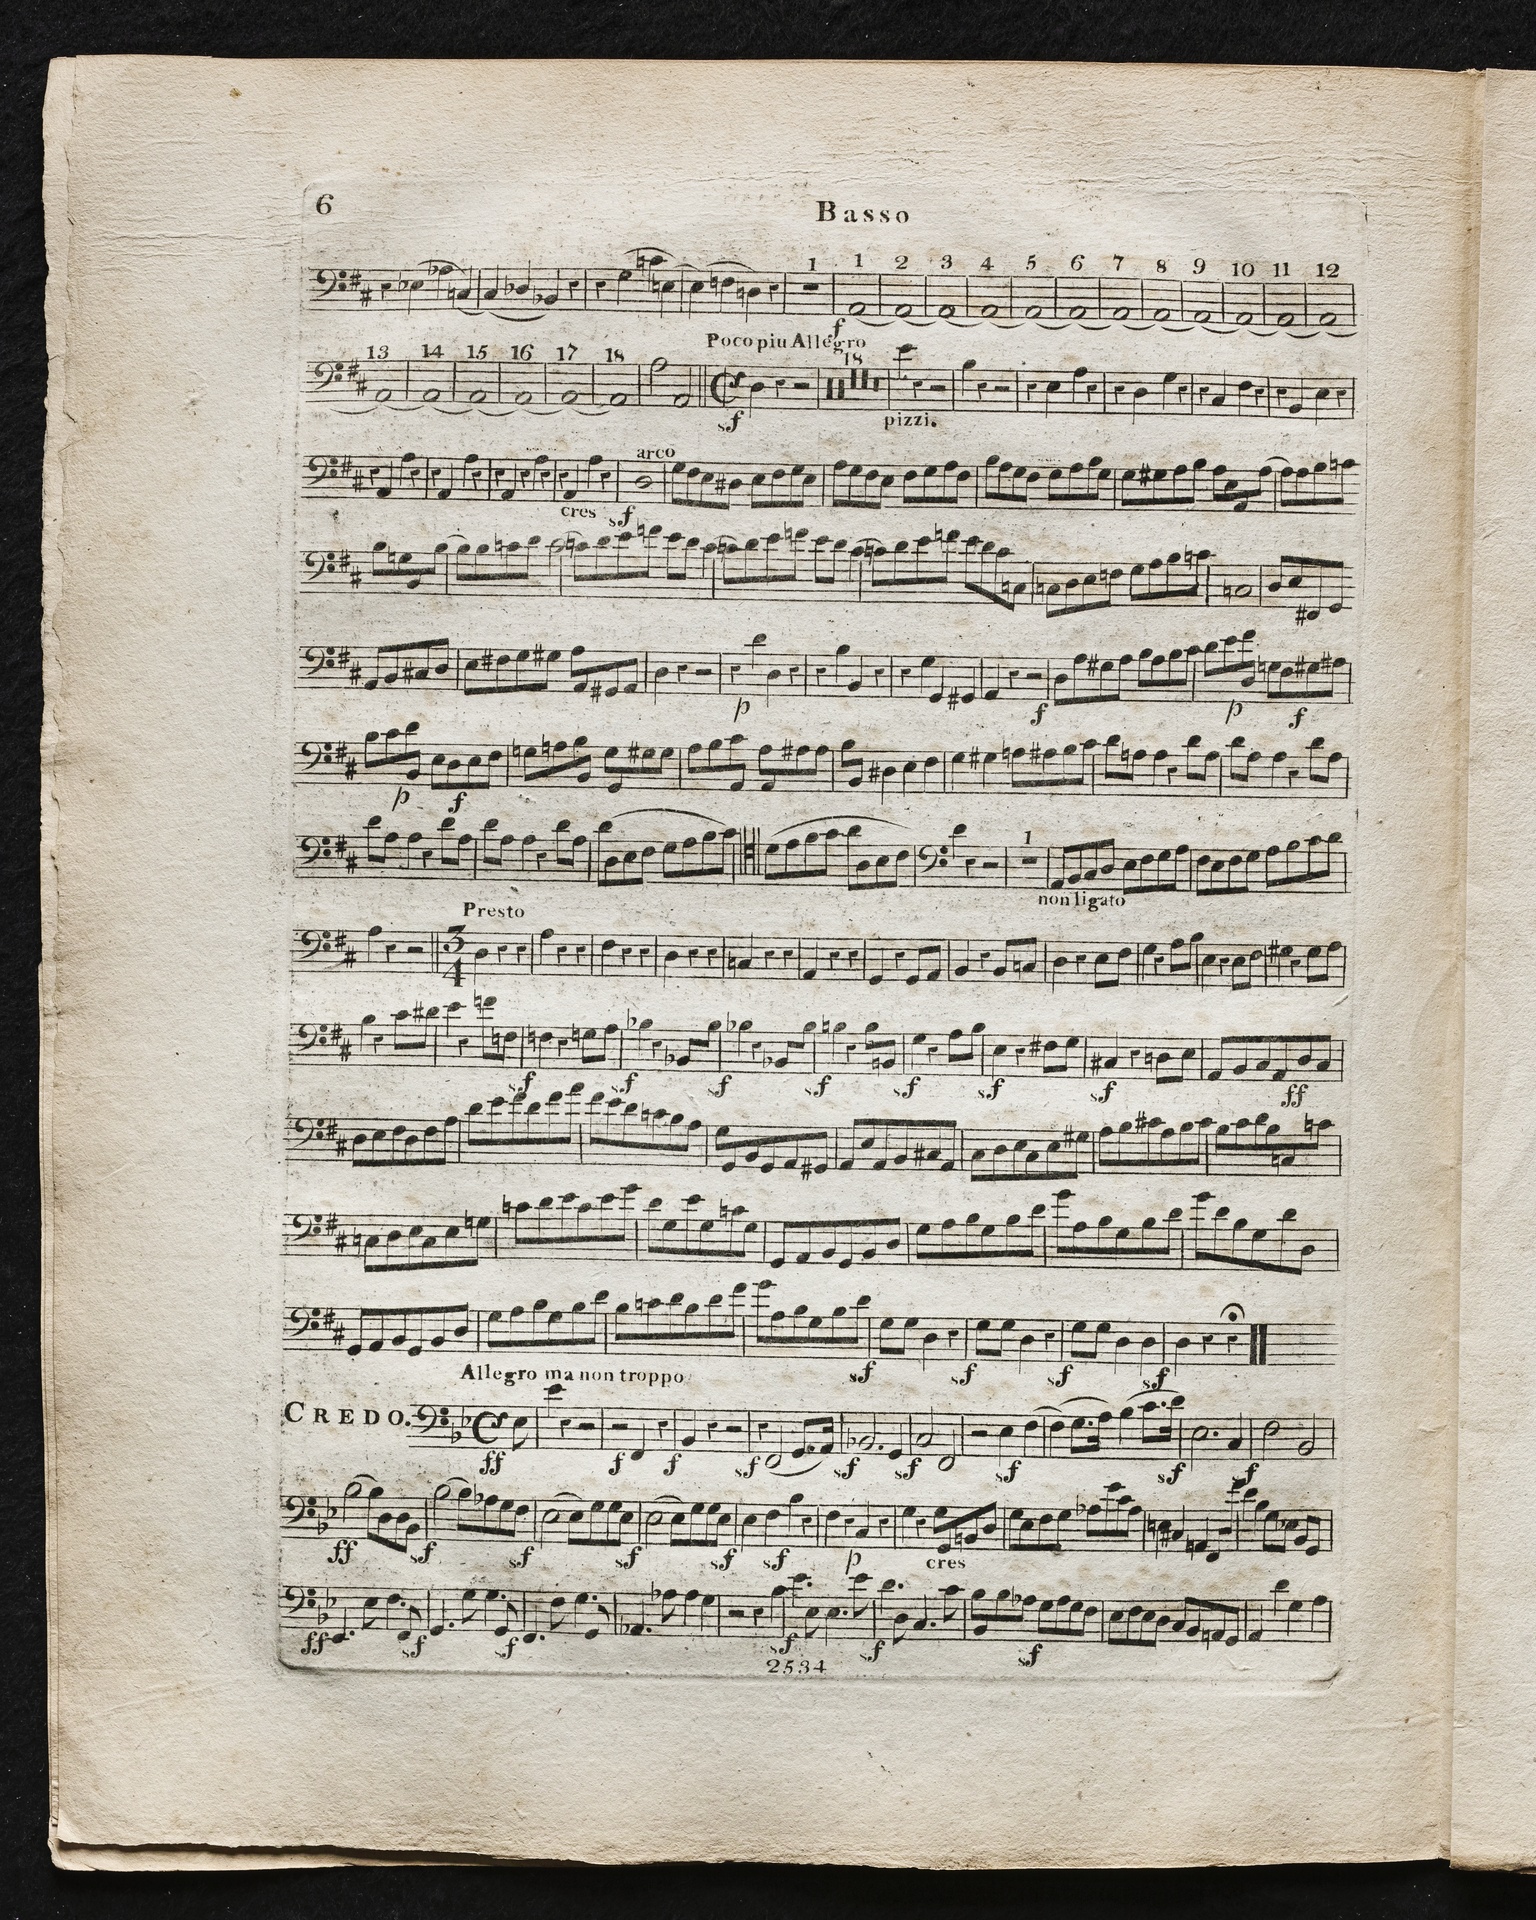 6
Basso
1 1 2 3 4 5 6 7 8 9 10 11 12
f
Poco piu Allegro
13 14 15 16 17 18 18
sf pizzi.
arco
cres sf
p f p f
p f
1
non ligato
Presto
3
4
sf sf sf sf sf sf sf ff
sf sf sf sf
Allegro ma non troppo
CREDO.
ff f f sf sf sf sf sf sf
ff sf sf sf sf sf p cres
ff sf sf sf sf sf
2534